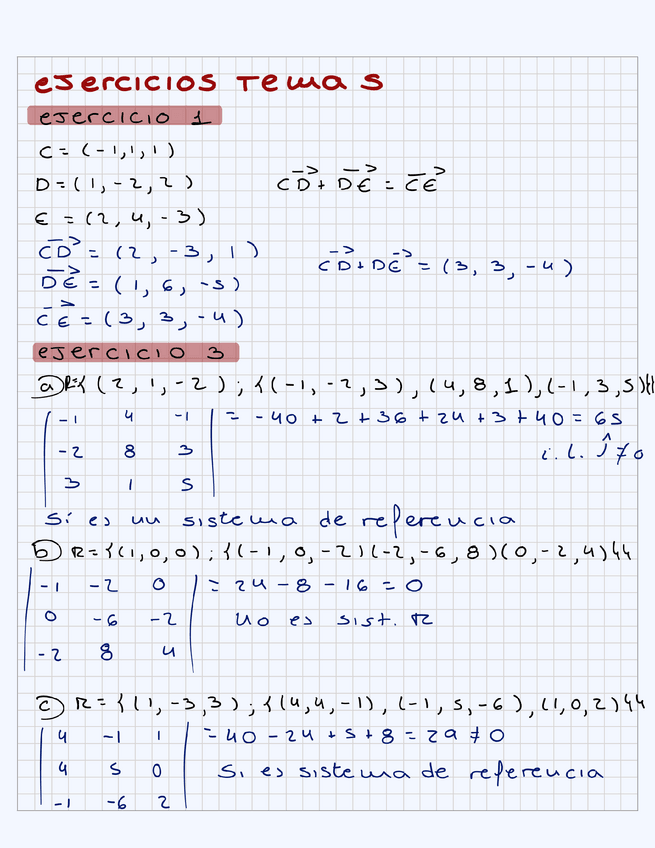 ejercicios Tema 5
ejercicio 1
C = (-1,1,1)
D = (1, -2, 2) CD→ + DE→ = CE→
E = (2, 4, -3)
CD→ = (2, -3, 1)
CD→ + DE→ = (3, 3, -4)
DE→ = (1, 6, -5)
CE→ = (3, 3, -4)
ejercicio 3
a) R={(2, 1, -2) ; {(-1, -2, 3), (4, 8, 1), (-1, 3, 5)}}
| -1 4 -1 | = -40 + 2 + 36 + 24 + 3 + 40 = 65
-2 8 3 i.l. ≠ 0
3 1 5
Sí es un sistema de referencia
b) R={(1, 0, 0) ; {(-1, 0, -2)(-2, -6, 8)(0, -2, 4)}}
| -1 -2 0 | = 24 - 8 - 16 = 0
0 -6 -2 no es sist. R
-2 8 4
c) R={(1, -3, 3) ; {(4, 4, -1), (-1, 5, -6), (1, 0, 2)}}
| 4 -1 1 | = 40 - 24 + 5 + 8 = 29 ≠ 0
4 5 0 Si es sistema de referencia
-1 -6 2